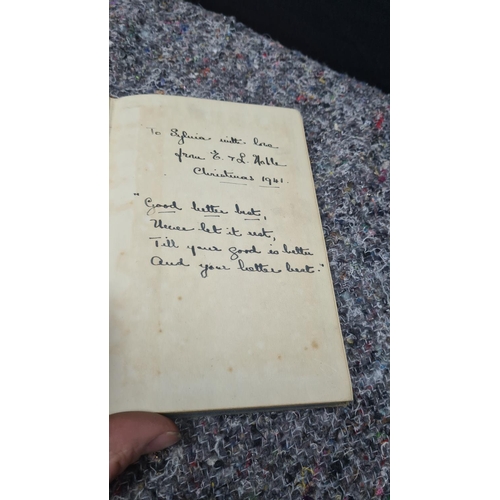 To Sylvia with love
from E. & L. Noble
Christmas 1941.
"Good better best,
Never let it rest,
Till your good is better
And your better best."